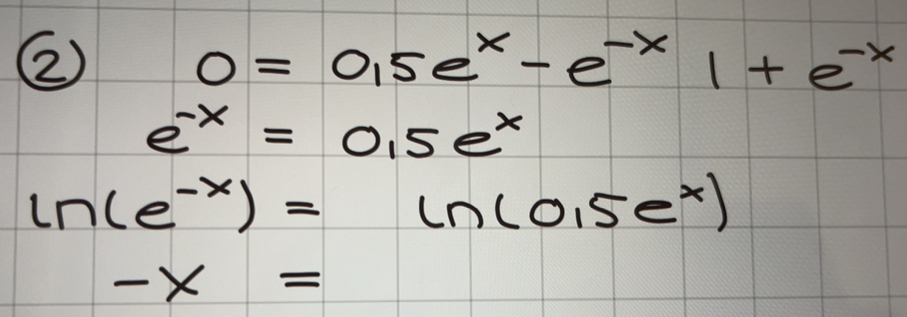 ② 0 = 0,5e^x - e^-x | + e^-x
e^-x = 0,5e^x
ln(e^-x) = ln(0,5e^x)
-x =